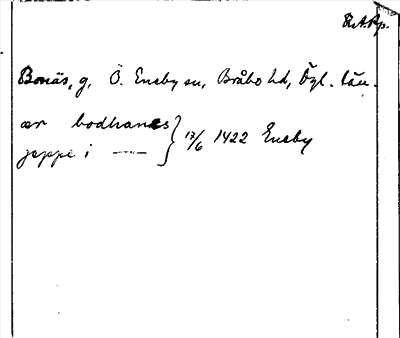 R.A.Pp.
Bonäs, g. Ö. Eneby sn, Bråbo hd, Ögl. län.
ær bodhanes } 17/6 1422 Eneby
jeppe i —